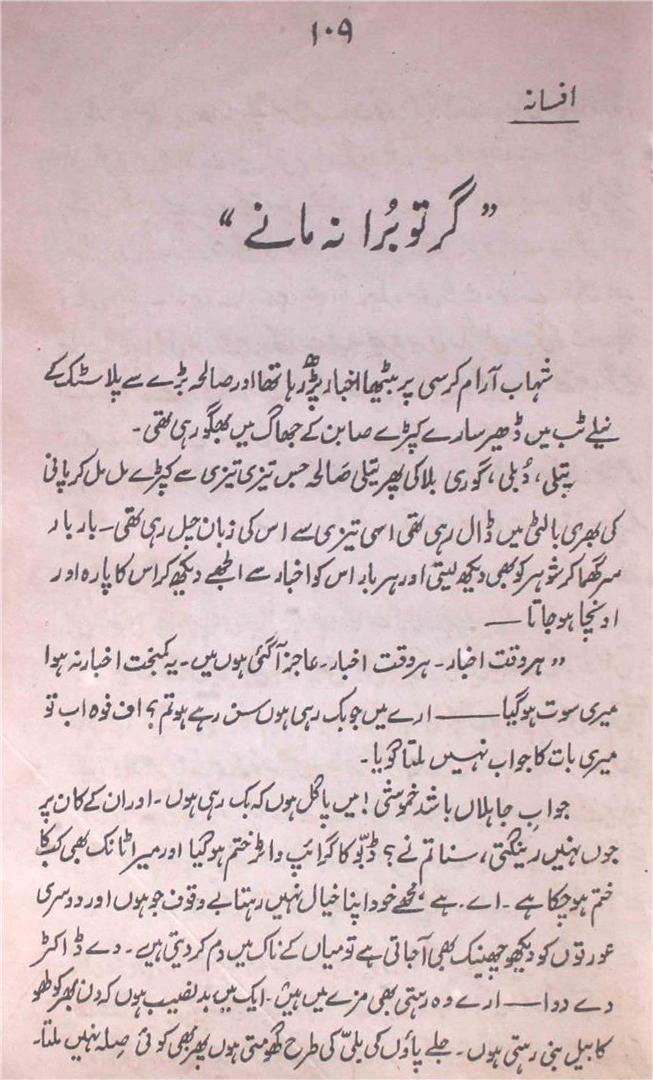 ۱۰۹
افسانہ
”گر تو بُرا نہ مانے“
شہاب آرام کرسی پر بیٹھا اخبار پڑھ رہا تھا اور صالحہ بڑے سے پلاسٹک کے
نیلے ٹب میں ڈھیر سارے کپڑے صابن کے جھاگ میں بھگو رہی تھی۔
پتلی، دُبلی، گوری بلا کی پھرتیلی صالحہ جس تیزی تیزی سے کپڑے مل مل کر پانی
کی بھری بالٹی میں ڈال رہی تھی اسی تیزی سے اس کی زبان چل رہی تھی۔ بار بار
سر گھما کر شوہر کو بھی دیکھ لیتی اور ہر بار اس کو اخبار سے الجھے دیکھ کر اس کا پارہ اور
اونچا ہو جاتا —
”ہر وقت اخبار۔ ہر وقت اخبار۔ عاجز آ گئی ہوں میں۔ یہ کمبخت اخبار نہ ہوا
میری سوت ہو گیا —— ارے میں جو بک رہی ہوں سن رہے ہو تم؟ اف فوہ اب تو
میری بات کا جواب نہیں ملتا گویا۔
جوابِ جاہلاں باشد خموشی! میں پاگل ہوں کہ بک رہی ہوں۔ اور ان کے کان پر
جوں نہیں رینگتی، سنا تم نے؟ ڈبّو کا گرائپ واٹر ختم ہو گیا اور میرا ٹانک بھی کب کا
ختم ہو چکا ہے۔ اے ہے، مجھے خود اپنا خیال نہیں رہتا بے وقوف جو ہوں اور دوسری
عورتوں کو دیکھو چھینک بھی آ جاتی ہے تو میاں کے ناک میں دم کر دیتی ہیں۔ دے ڈاکٹر
دے دوا —— ارے وہ رہتی بھی مزے میں ہیں۔ ایک میں بد نصیب ہوں کہ دن بھر کولھو
کا بیل بنی رہتی ہوں۔ جلے پاؤں کی بلّی کی طرح گھومتی ہوں پھر بھی کوئی صِلہ نہیں ملتا۔